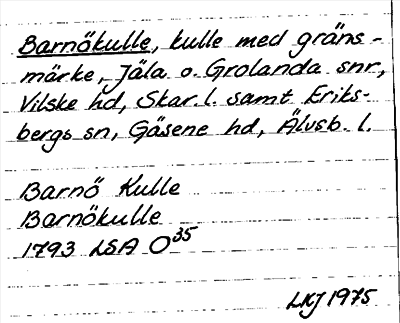 Barnökulle, kulle med gräns-
märke, Jäla o. Grolanda snr,
Vilske hd, Skar. l. samt Eriks-
bergs sn, Gäsene hd, Älvsb. l.
Barnö Kulle
Barnökulle
1793 LSA O35
LKJ 1975